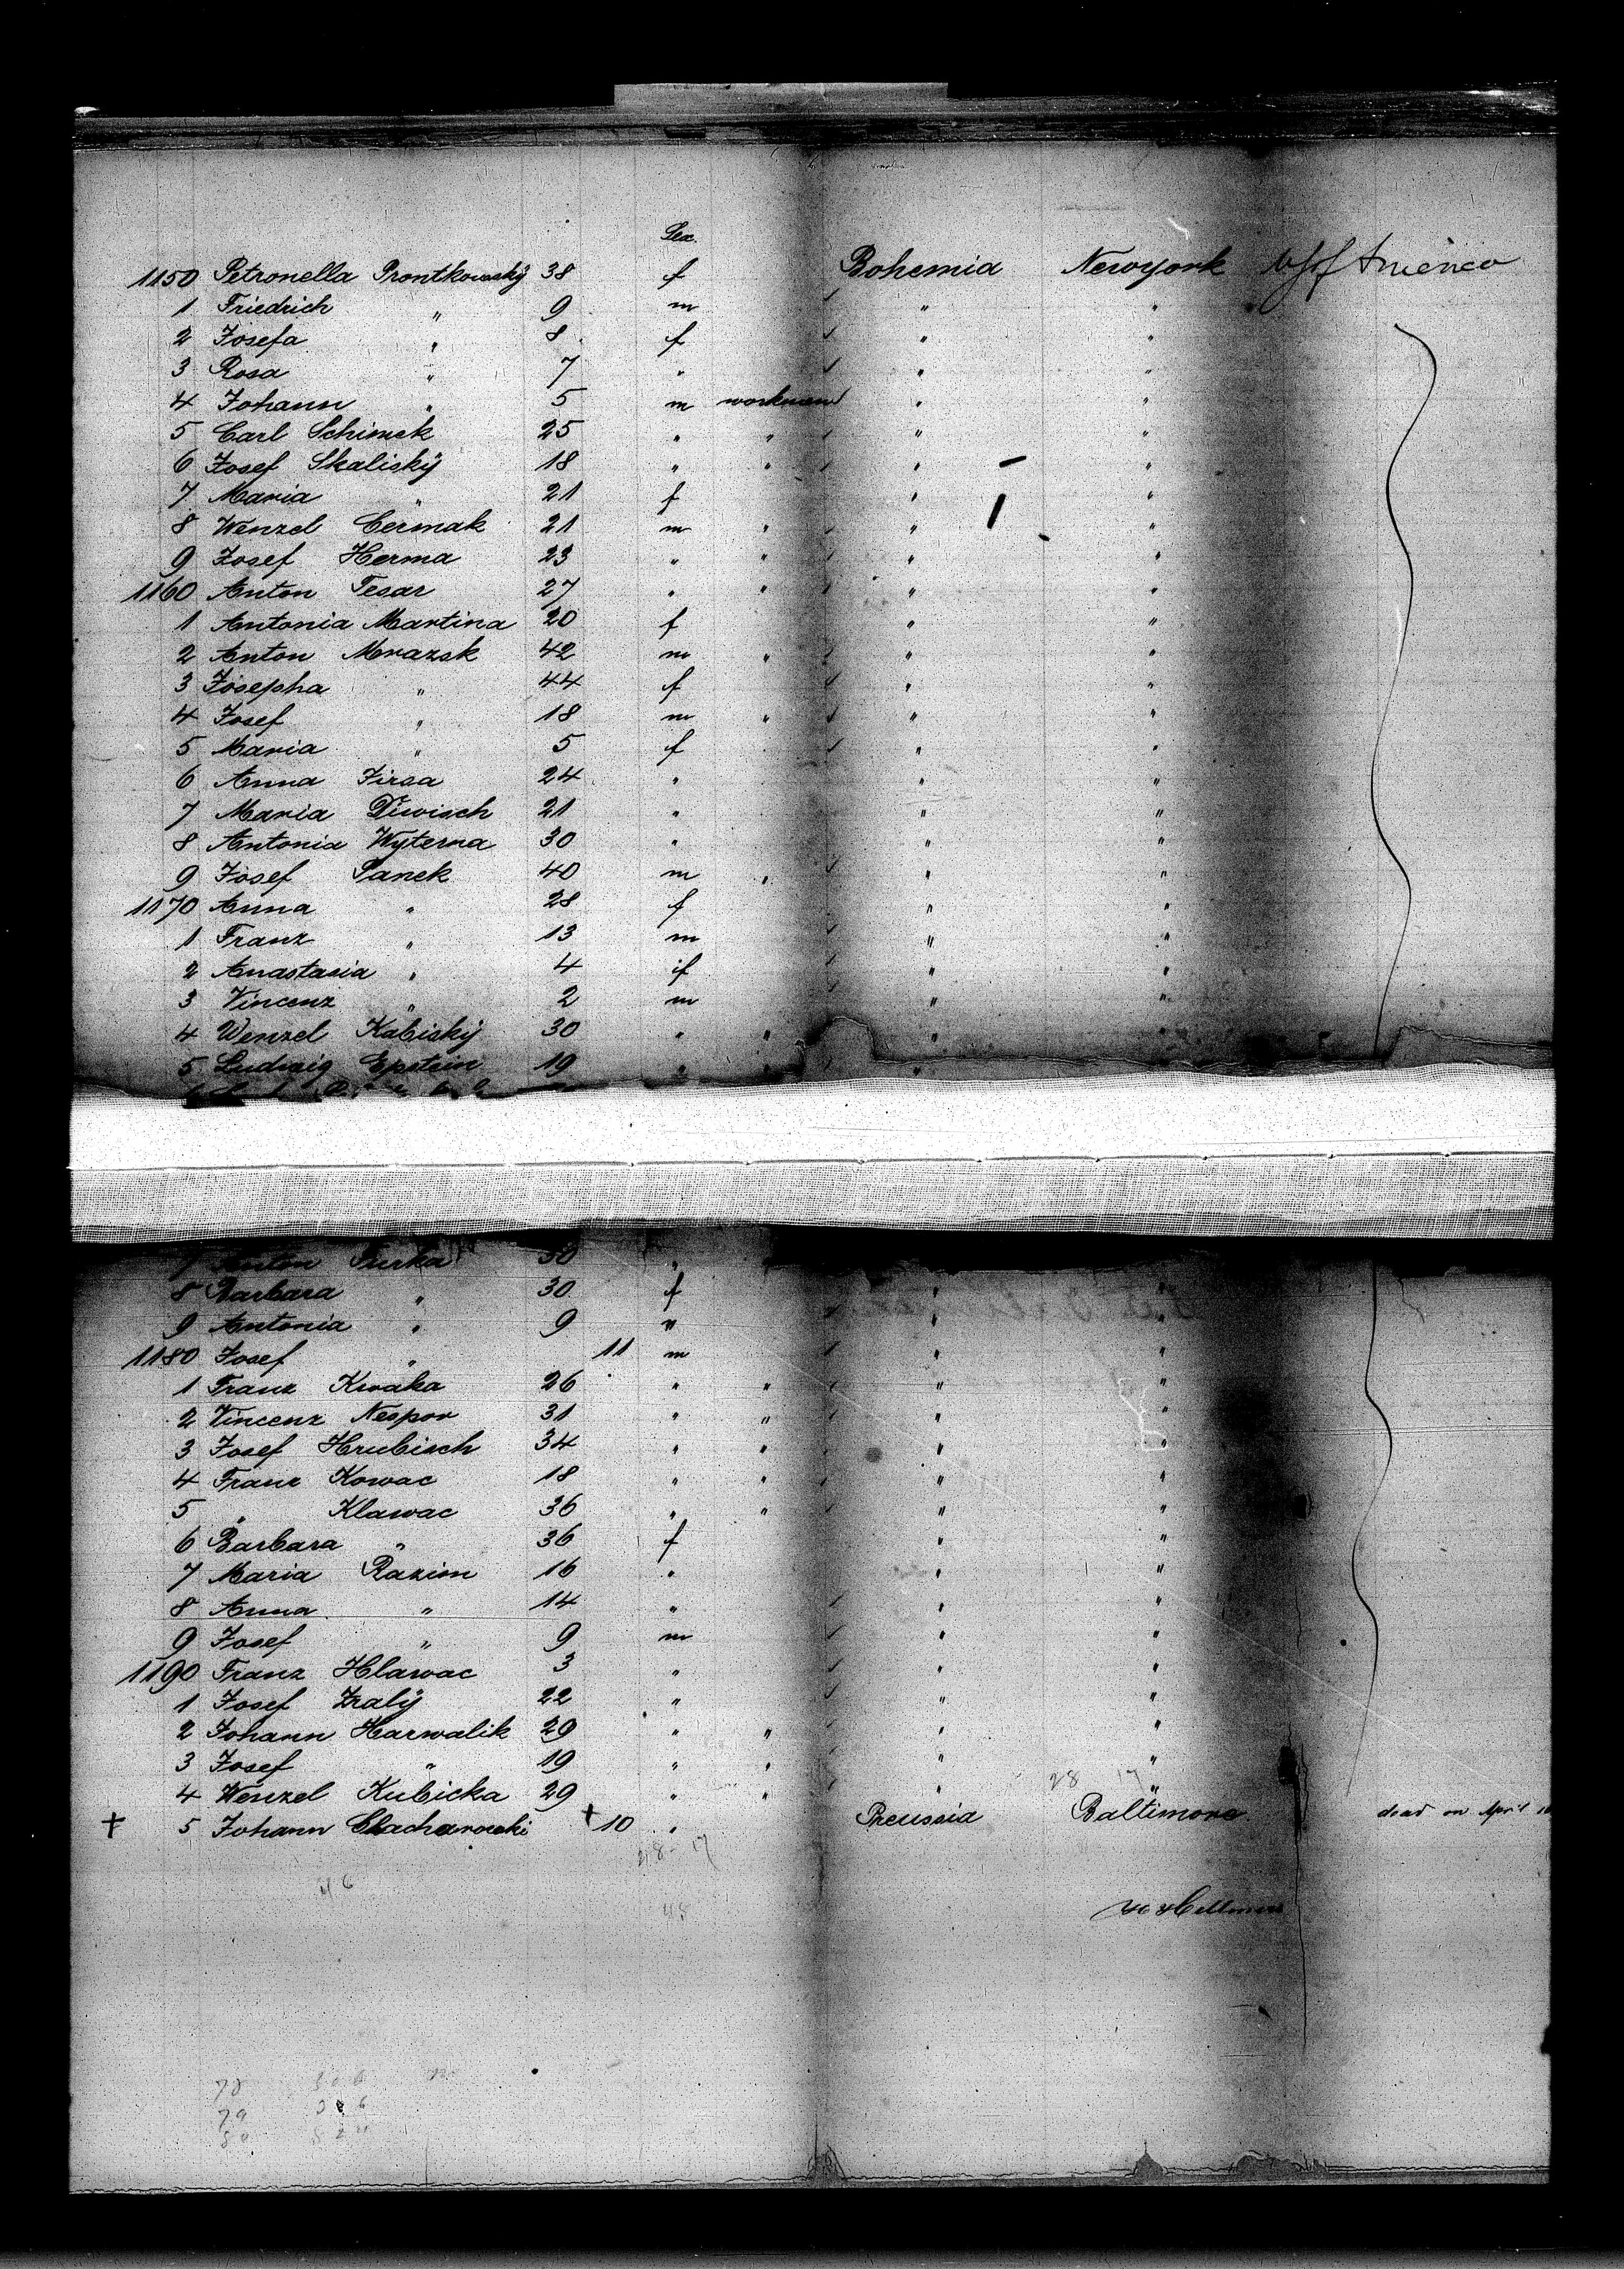 Sex.
1150 Petronella Prontkowský 38 f Bohemia Newyork U S of America
1 Friedrich " 9 m " "
2 Josefa " 8 f " "
3 Rosa " 7 " " "
4 Johann " 5 m workman " "
5 Carl Schimek 25 " " " "
6 Josef Skaliský 18 " " " "
7 Maria " 21 f " "
8 Wenzel Cermak 21 m " " "
9 Josef Herma 23 " " " "
1160 Anton Tesar 27 " " " "
1 Antonia Martina 20 f " "
2 Anton Mrazek 42 m " " "
3 Josepha " 44 f " "
4 Josef " 18 m " " "
5 Maria " 5 f " "
6 Anna Jirsa 24 " " "
7 Maria Diwisch 21 " " "
8 Antonia Wyterna 30 " " "
9 Josef Panek 40 m " " "
1170 Anna " 28 f " "
1 Franz " 13 m " "
2 Anastasia " 4 f " "
3 Vincenz " 2 m " "
4 Wenzel Kabiský 30 " " " "
5 Ludwig Epstein 19 " " "
7 Anton Purka 30 " "
8 Barbara " 30 f " "
9 Antonia " 9 " " "
1180 Josef " 11 m " "
1 Franz Kwaka 26 " " " "
2 Vincenz Nespor 31 " " " "
3 Josef Hrubisch 34 " " " "
4 Franz Kowac 18 " " " "
5 " Klawac 36 " " " "
6 Barbara " 36 f " "
7 Maria Razim 16 " " "
8 Anna " 14 " " "
9 Josef " 9 m " "
1190 Franz Hlawac 3 " " "
1 Josef Zralý 22 " " "
2 Johann Harwalik 29 " " " "
3 Josef " 19 " " " "
4 Wenzel Kubicka 29 " " " "
28 17
† 5 Johann † 10 " Preussia Baltimore dead on April
28-17
46
48